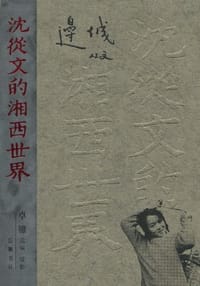 沈從文的湘西世界
邊城
從文
卓雅
沈從文的
湘西世界